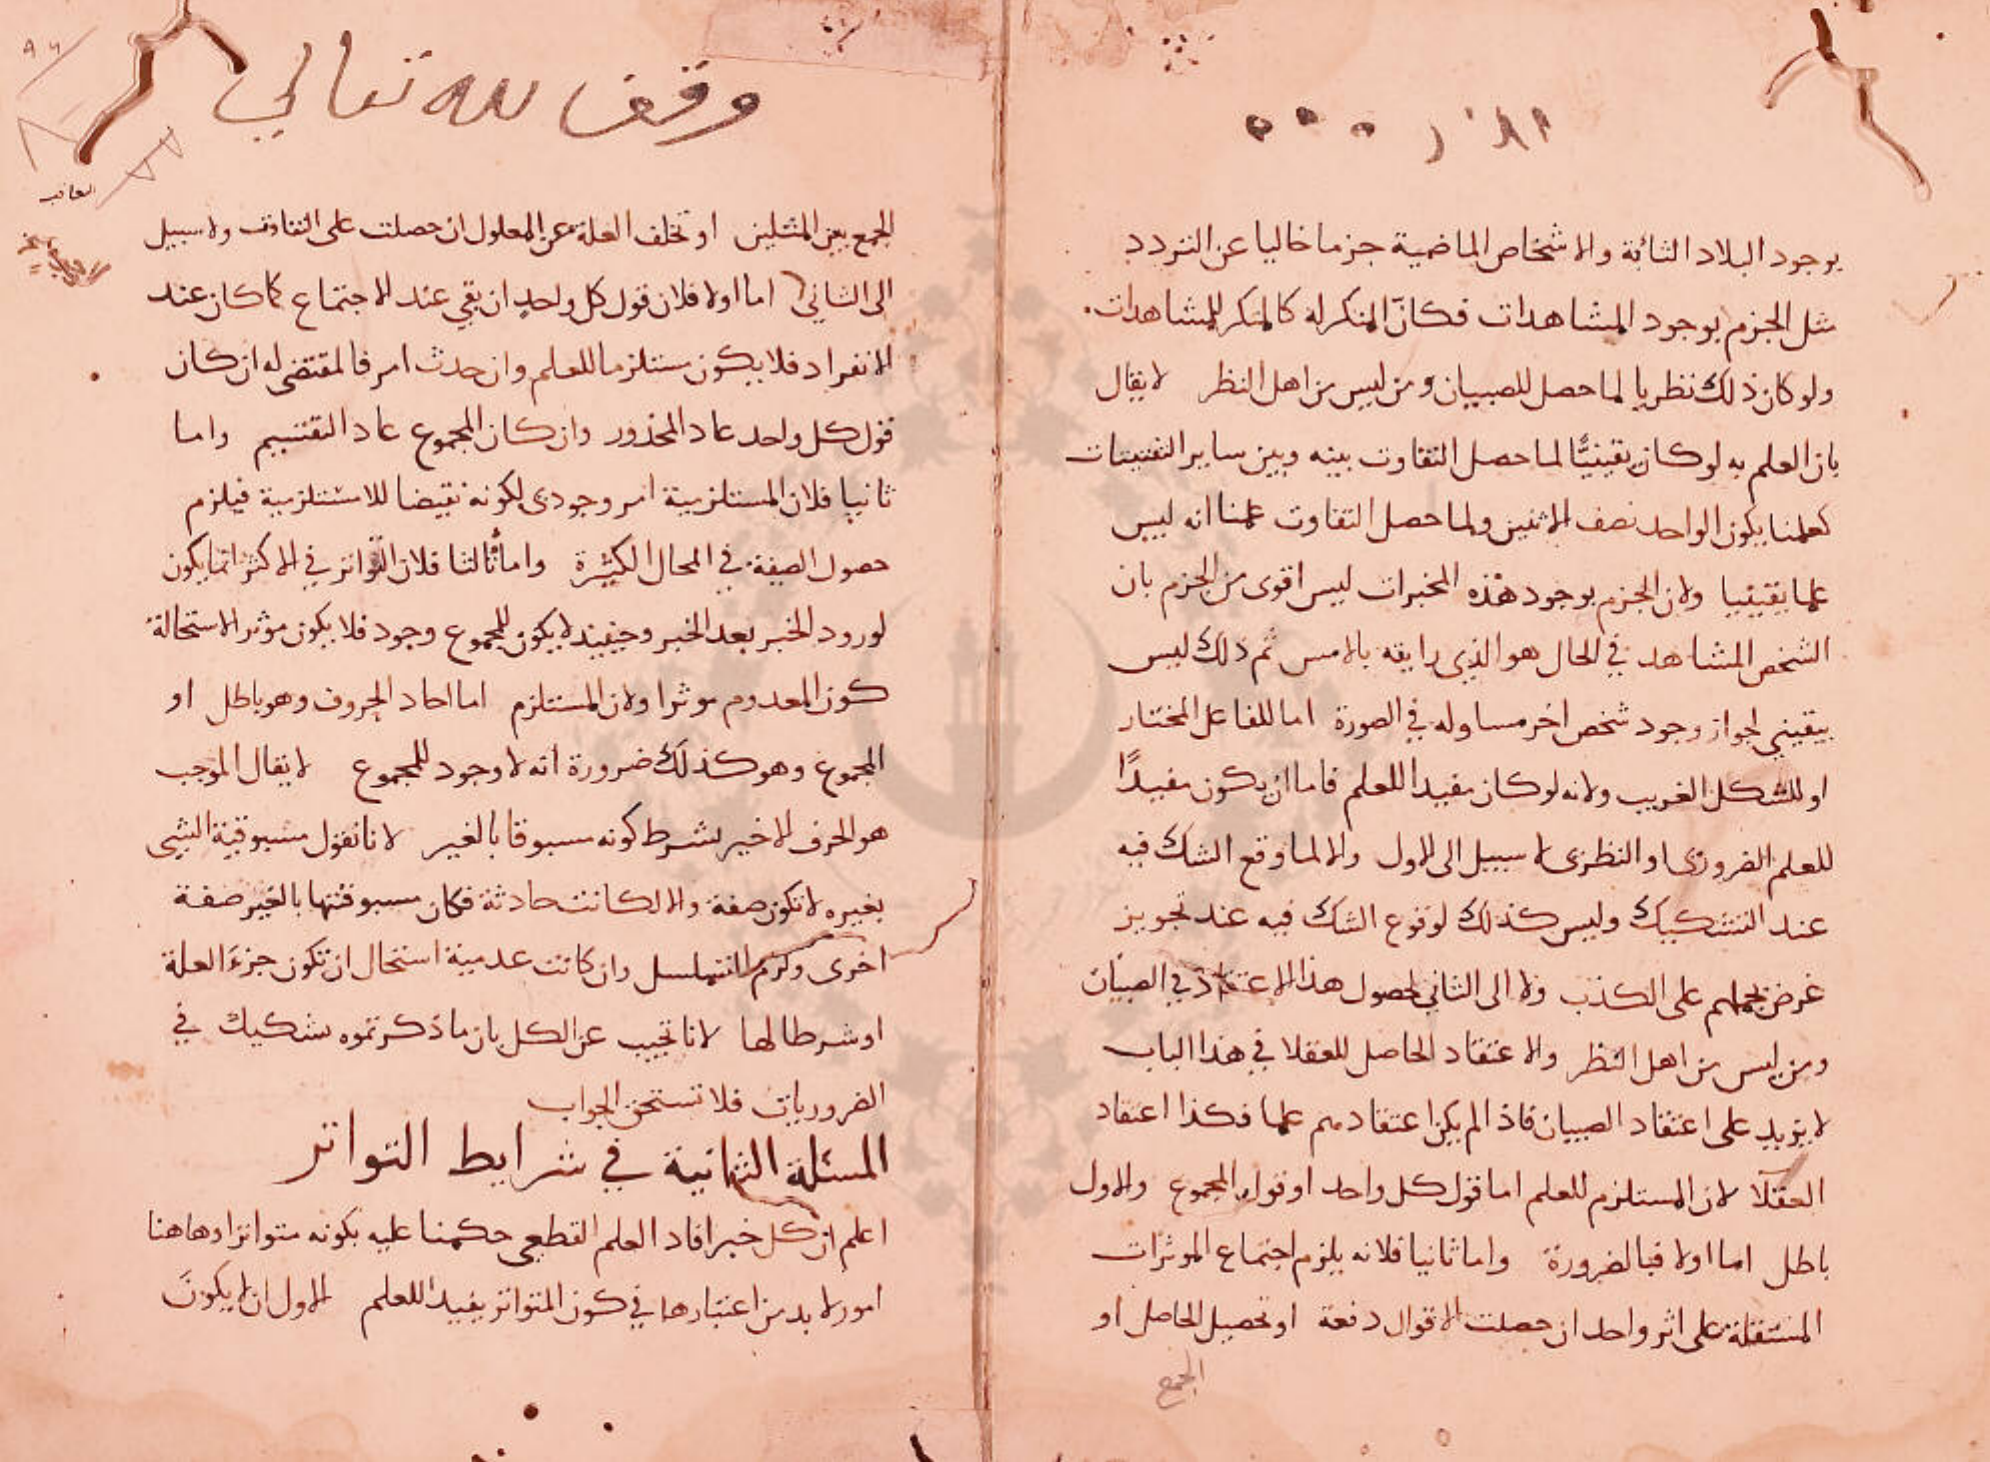 بوجود البلاد النائية والاشخاص الماضية جزما خاليا عن التردد
مثل الجزم بوجود المشاهدات فكان المنكر له كالمنكر للمشاهدات.
ولو كان ذلك نظريا لما حصل للصبيان ومن ليس من اهل النظر لا يقال
بان العلم به لو كان يقينيًّا لما حصل التفاوت بينه وبين ساير اليقينيات
كعلمنا بكون الواحد نصف الاثنين ولما حصل التفاوت علمنا انه ليس
علما يقينيا ولان الجزم بوجود هذه المخبرات ليس اقوى من الجزم بان
الشخص المشاهد في الحال هو الذي رايته بالامس ثم ذلك ليس
بيقيني لجواز وجود شخص اخر مساو له في الصورة اما للفاعل المختار
او للشكل الغريب ولانه لو كان مفيدا للعلم فاما ان يكون مفيدًا
للعلم الضروري او النظري لا سبيل الى الاول والا لما وقع الشك فيه
عند التشكيك وليس كذلك لوقوع الشك فيه عند تجويز
غرض يحملهم على الكذب ولا الى الثاني لحصول هذا الاعتقاد في الصبيان
ومن ليس من اهل النظر والاعتقاد الحاصل للعقلا في هذا الباب
لا يزيد على اعتقاد الصبيان فاذا لم يكن اعتقادهم علما فكذا اعتقاد
العقلآ لان المستلزم للعلم اما قول كل واحد او قول المجموع والاول
باطل اما اولا فبالضرورة واما ثانيا فلانه يلزم اجتماع الموثرات
المستقلة على اثر واحد ان حصلت الاقوال دفعة او تحصيل الحاصل او
الجمع
وقف لله تعالي
الجمع بين المثلين او تخلف العلة عن المعلول ان حصلت على التفاوت ولا سبيل
الى الثاني اما اولا فلان قول كل واحد ان بقي عند الاجتماع كما كان عند
الانفراد فلا يكون مستلزما للعلم وان حدث امر فالمقتضى له ان كان
قول كل واحد عاد المحذور وان كان المجموع عاد التقسيم واما
ثانيا فلان المستلزمية امر وجودى لكونه نقيضا للامستلزمية فيلزم
حصول الصفة في المحال الكثيرة واما ثالثا فلان التواتر في الاكثر انما يكون
لورود الخبر بعد الخبر وحينيذ لا يكون للمجموع وجود فلا يكون موثر الاستحالة
كون المعدوم موثرا ولان المستلزم اما احاد الحروف وهو باطل او
المجموع وهو كذلك ضرورة انه لا وجود للمجموع لا يقال الموجب
هو الحرف الاخير بشرط كونه مسبوقا بالغير لانا نقول مسبوقية الشيى
بغيره لا تكون صفة والا لكانت حادثة فكان مسبوقتها بالغير صفة
اخرى ولزم التسلسل وان كانت عدمية استحال ان تكون جزءَ العلة
او شرطا لها لانا نجيب عن الكل بان ما ذكرتموه تشكيك في
الضروريات فلا تستحق الجواب
المسئلة الثانية في شرايط التواتر
اعلم ان كل خبر افاد العلم القطعي حكمنا عليه بكونه متواترا وهاهنا
امور لا بد من اعتبارها في كون المتواتر يفيد للعلم الاول ان لا يكونَ